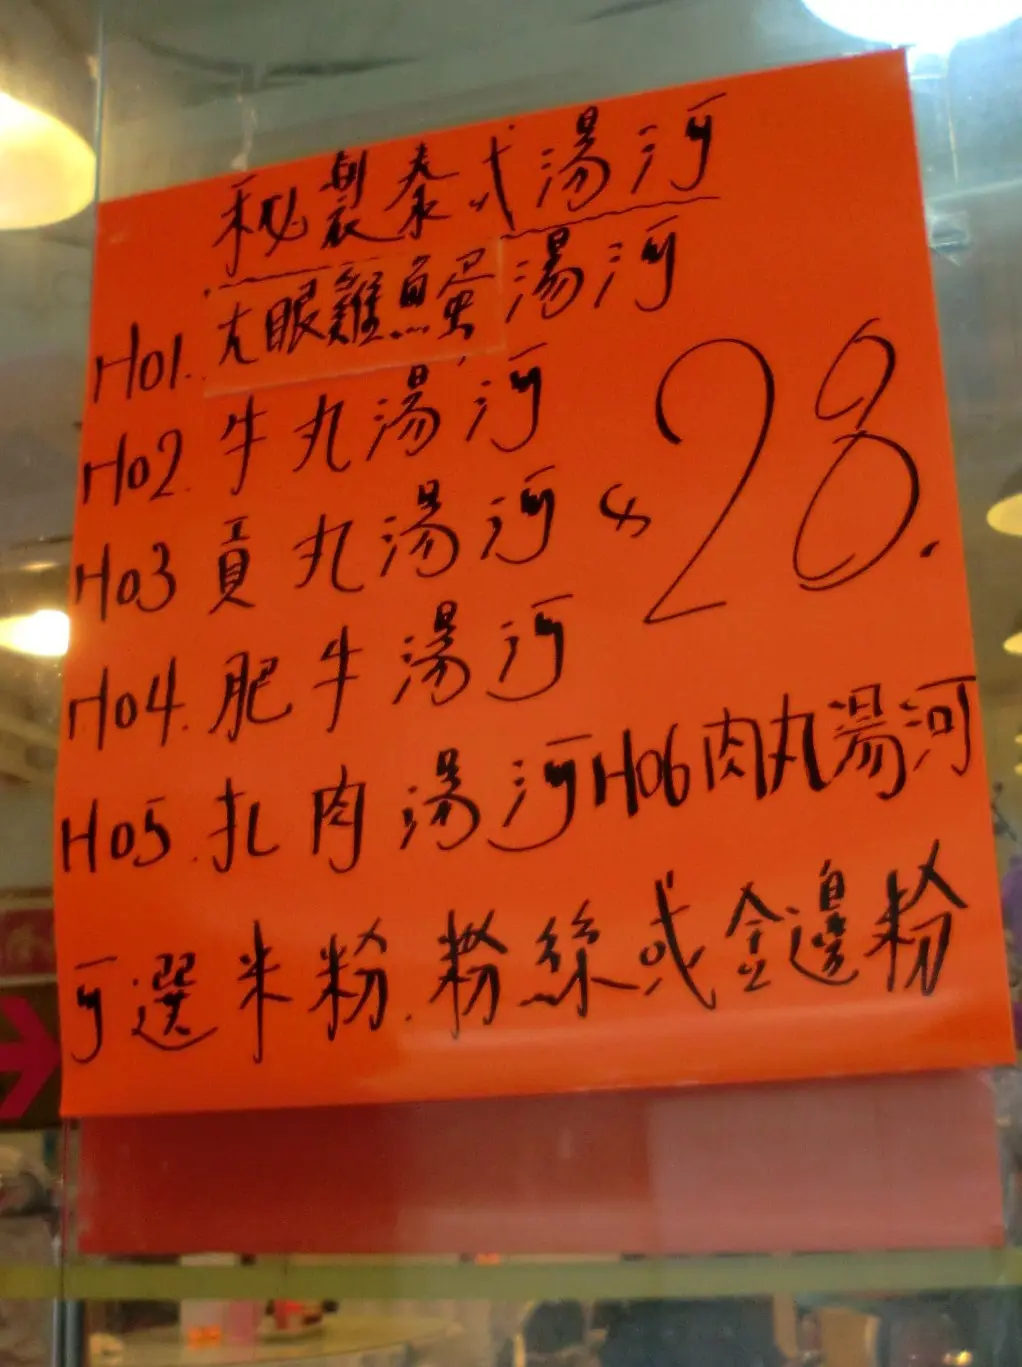 秘製泰式湯河
H01. 大眼雞魚蛋湯河
H02. 牛丸湯河
H03 貢丸湯河
$28.
H04. 肥牛湯河
H05. 扎肉湯河 H06 肉丸湯河
可選米粉.粉絲或金邊粉